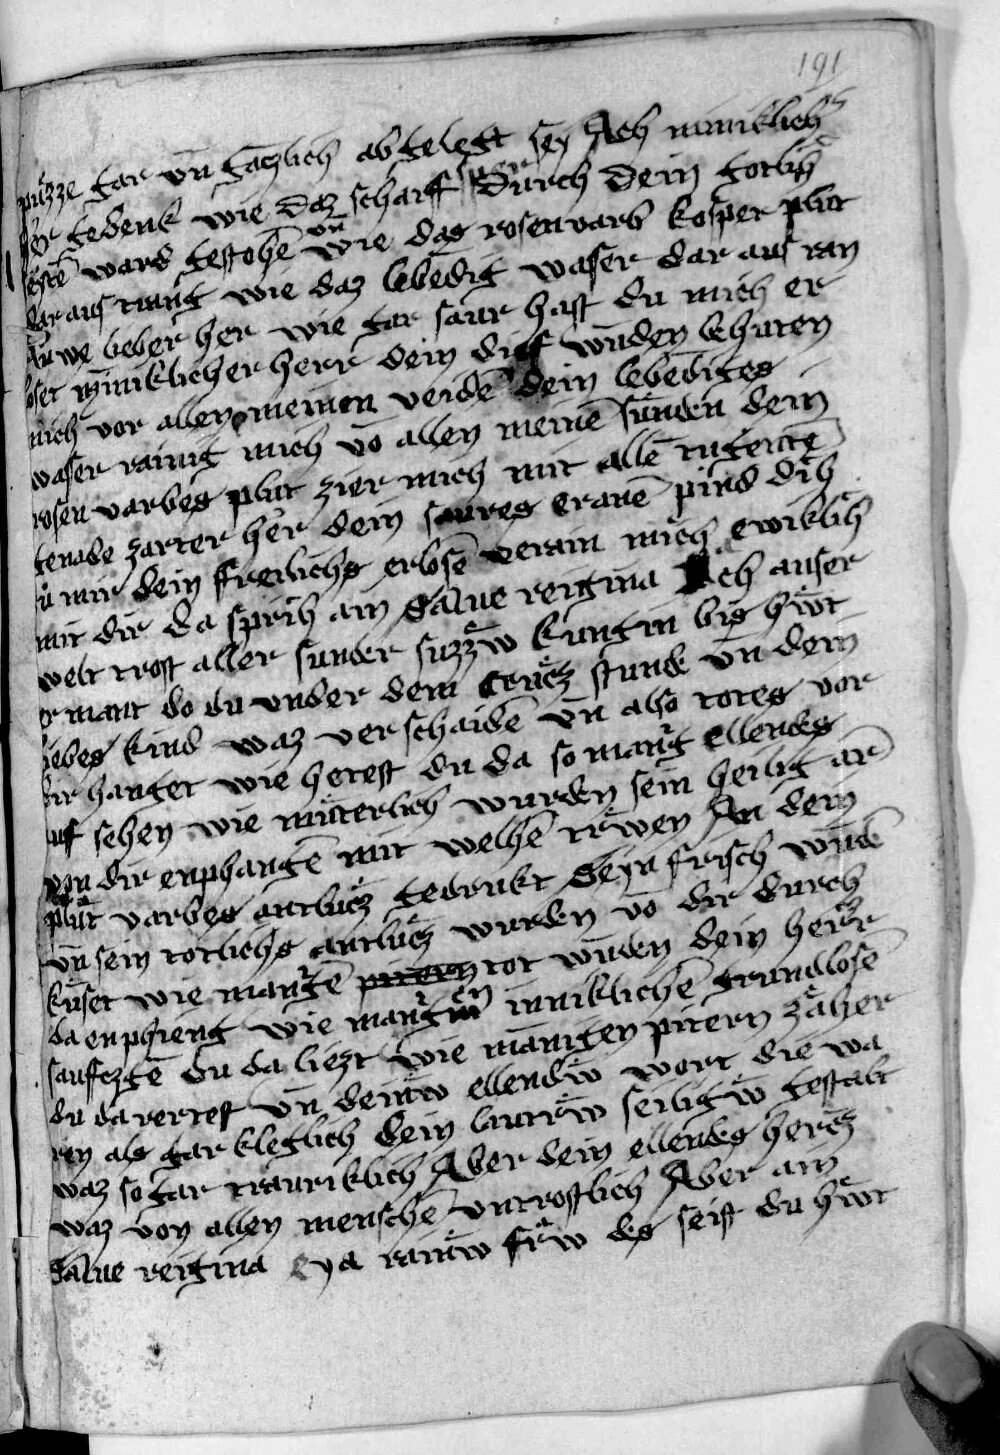 191
pfüzze gar vn̄ gäczlich ab gelegt sey Ach miniklichs
her gedenk wie daz scharff sper durch dein gotlichs
seytē ward gestochē vn̄ wie das rosenvarb kosper plut
dar aus rang wie daz lebēdig waser dar aus ran
Auwe lieber her wie gar saur hast du mich er
loset miniklicher herr dein dieff wūden behuten
mich vor allen meinen veidē dein lebēdiges
waser rainig mich vō allen meinē sündn dein
rosen varbes plut zier mich mit allē tugentē
genade zarter her dein saures eranē pind dih
zu mir dein freilichs erlosē verain mich ewiklich
mit dir da sprich ain Salue reigina Ach auser
welt trost aller sunder suzzw̄ kungin bis hw̄t
er mant do du vnder dem crücz stund vn̄ dein
liebes kind waz verschaidē vn̄ also totes vor
dir hanget wie hetest du da so mang ellendes
auf sehen wie müterlich wurdn sein heilig arm
von dir enphangē mit welhē trw̄en An dein
plut varbes antlücz gedrukt Seyn frisch wūdē
vn̄ sein totlichs antlücz wurdn vō dir durch
küset wie mangē tot wūden dein hercz
da enphieng wie mangen inniklichē grundlosē
sauffczgē du da liezt wie manigen pitern zäher
du da rertest vn̄ deinw̄ ellendw̄ wort die wa
ren als gar kleglich dein lautrw̄ seiligw̄ gestalt
waz so gar trauriklich Aber dein ellendes hercz
waz von allen menschē vntrostlich Aber ain
Salue reigina Eya rainw̄ frw̄ des seist du hw̄t